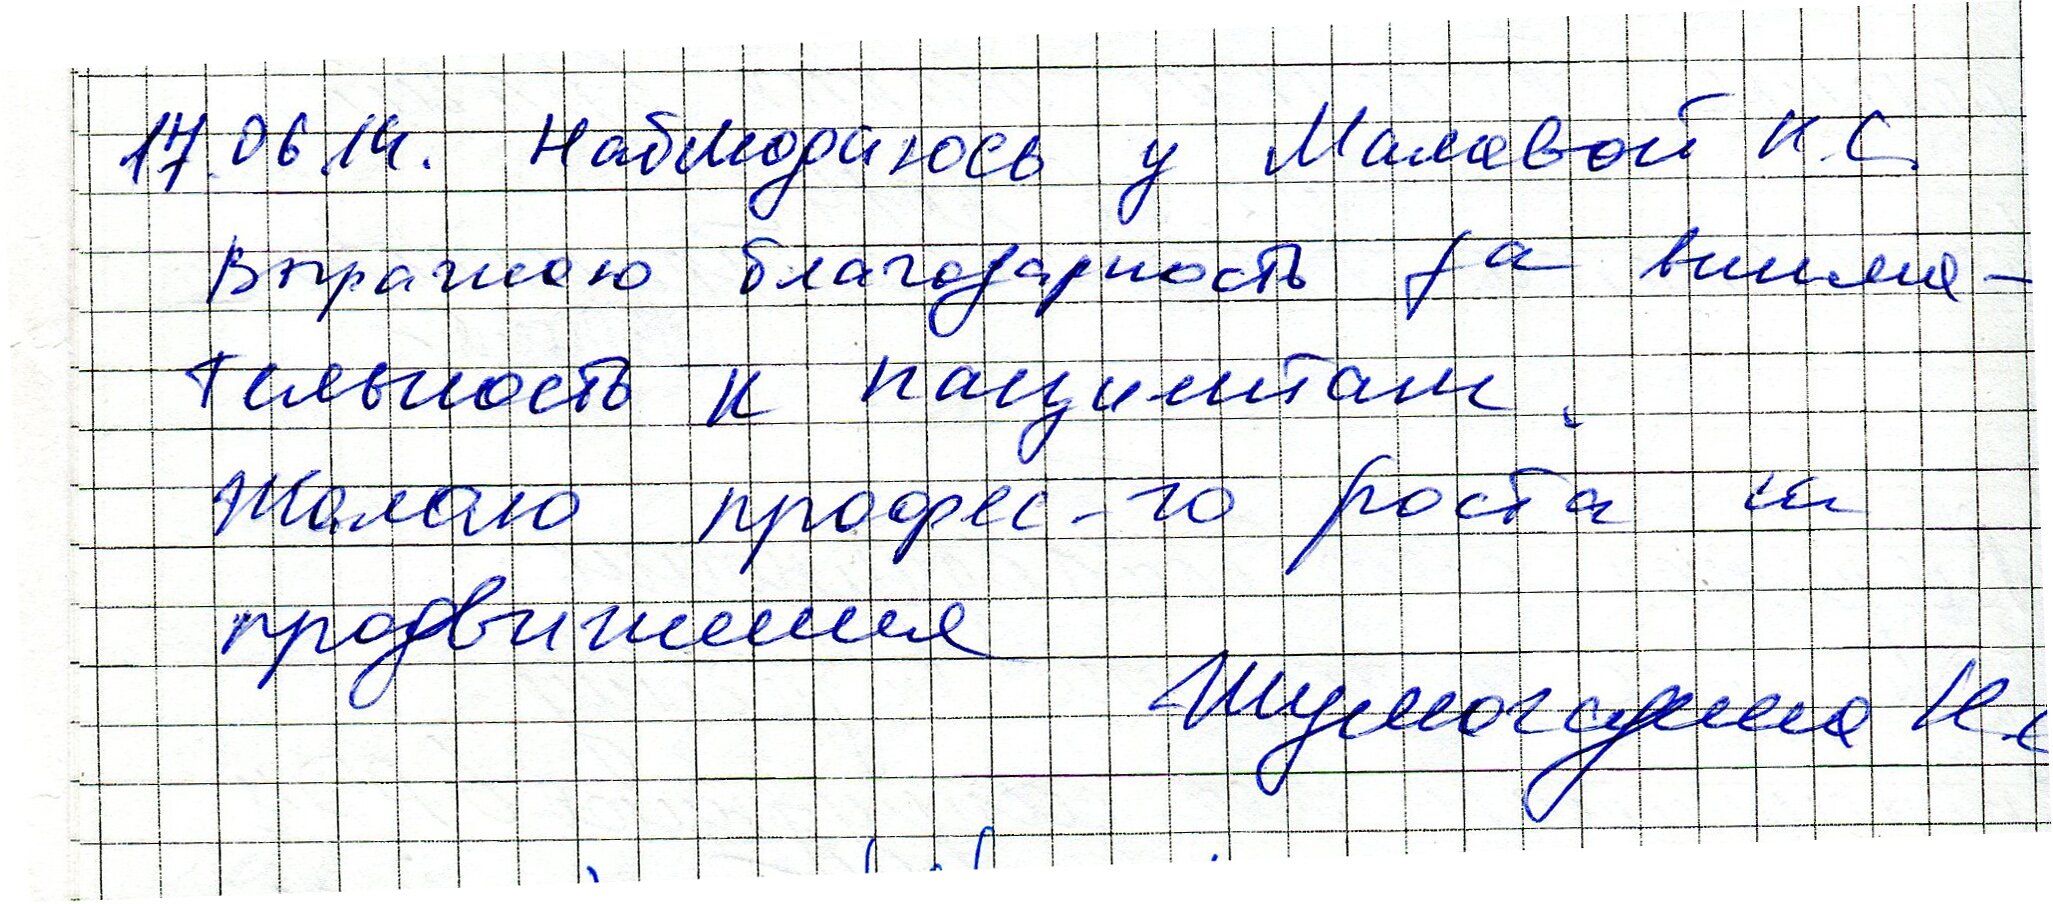 17.06.14. Наблюдаюсь у Малавой К.С.
Выражаю благодарность за внима-
тельность к пациентам.
Желаю профес-го роста и
продвижения